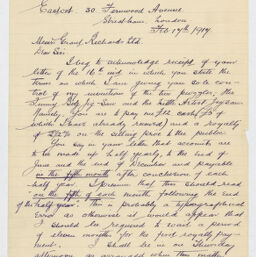 Eastcot, 30, Fernwood Avenue
Streatham, London
Feb 17th 1914
Messrs Grant Richards Ltd
Dear Sirs
I beg to acknowledge receipt of your
letter of the 16th inst in which you state the
terms on which I am giving you sole con-
trol of my invention of the two puzzles, the
Namely: You are to pay me £5 cash
which I have already received and a royalty
of % on the selling price to the public.
You say in your letter that accounts are
to be made up half yearly, to the end of
June and the end of December and payable
in the fifth month after conclusion of each
half year. I presume that this should read
"on the fifth of each month following the end
of the half year". This is probably a typographical
error as otherwise it would appear that
I should be required to wait a period
of eleven months for the first royalty pay-
ment.
I shall be in on Thursday
afternoon as arranged when this matter